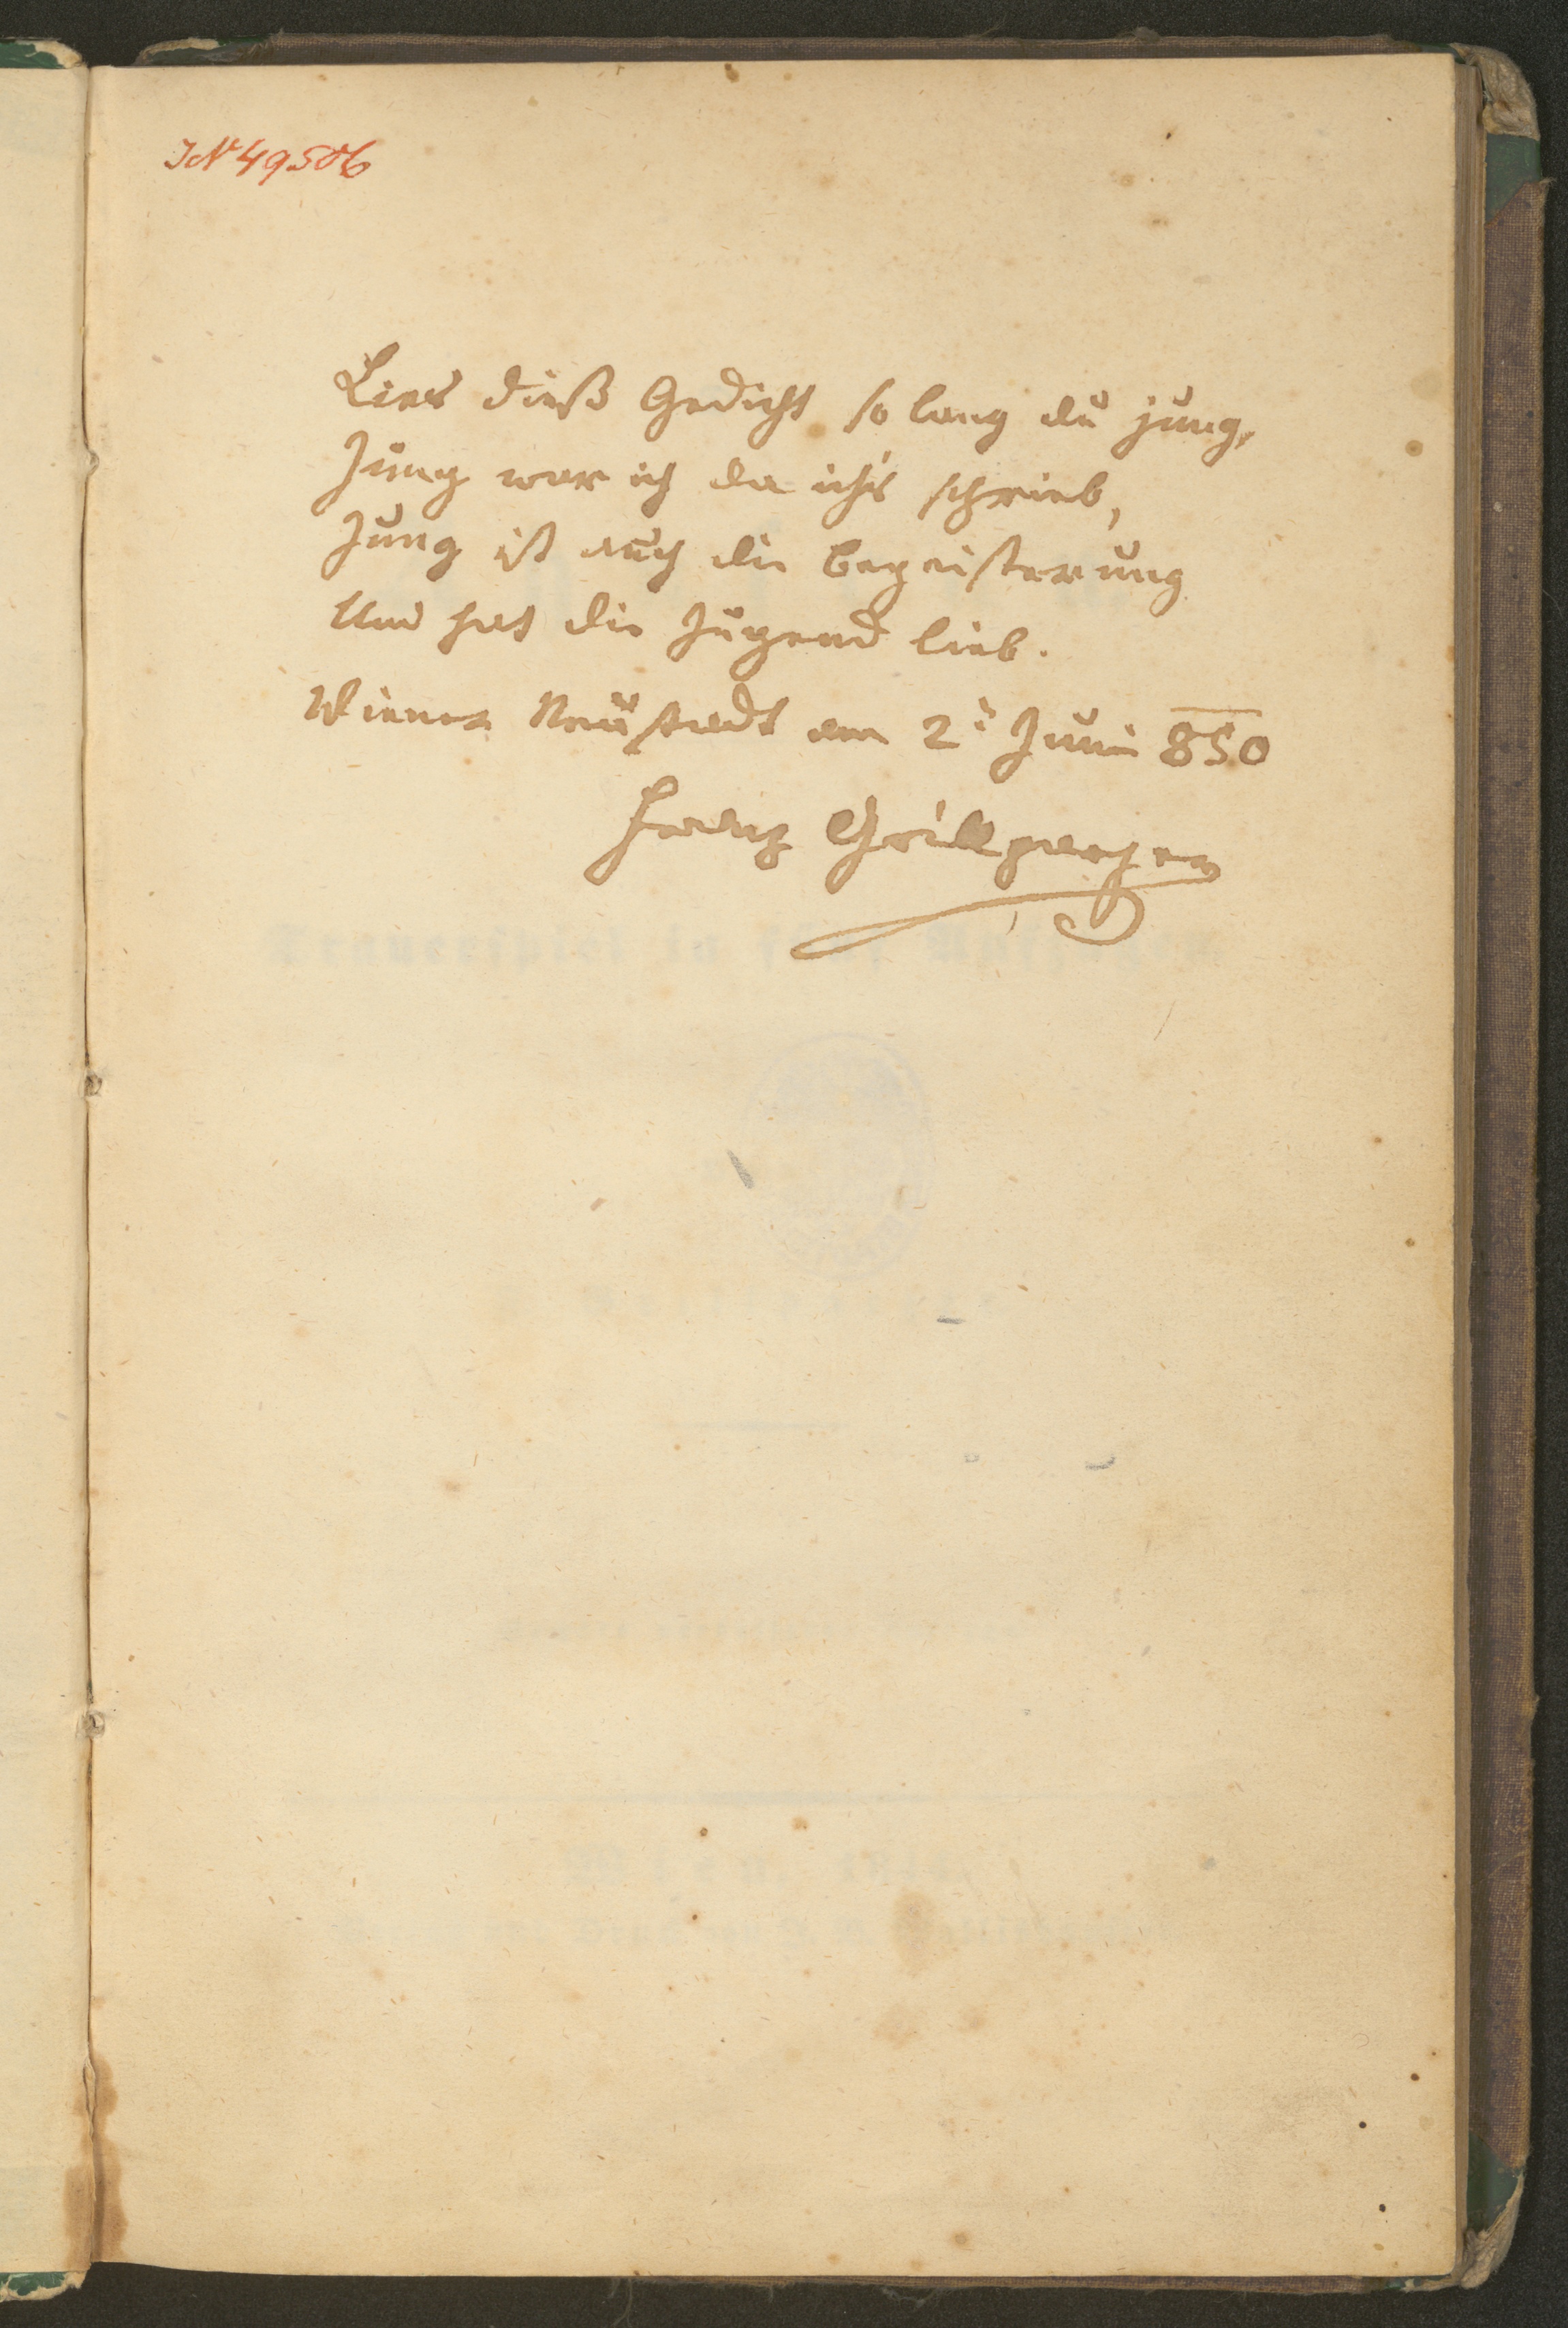 IN 49506
Lies dieß Gedicht so lang du jung,
Jung war ich da ich's schrieb,
Jung ist auch die Begeisterung
Und hat die Jugend lieb.
Wiener Neustadt am 2t Juni 850
Franz Grillparzer
Trauerspiel in fünf Aufzügen